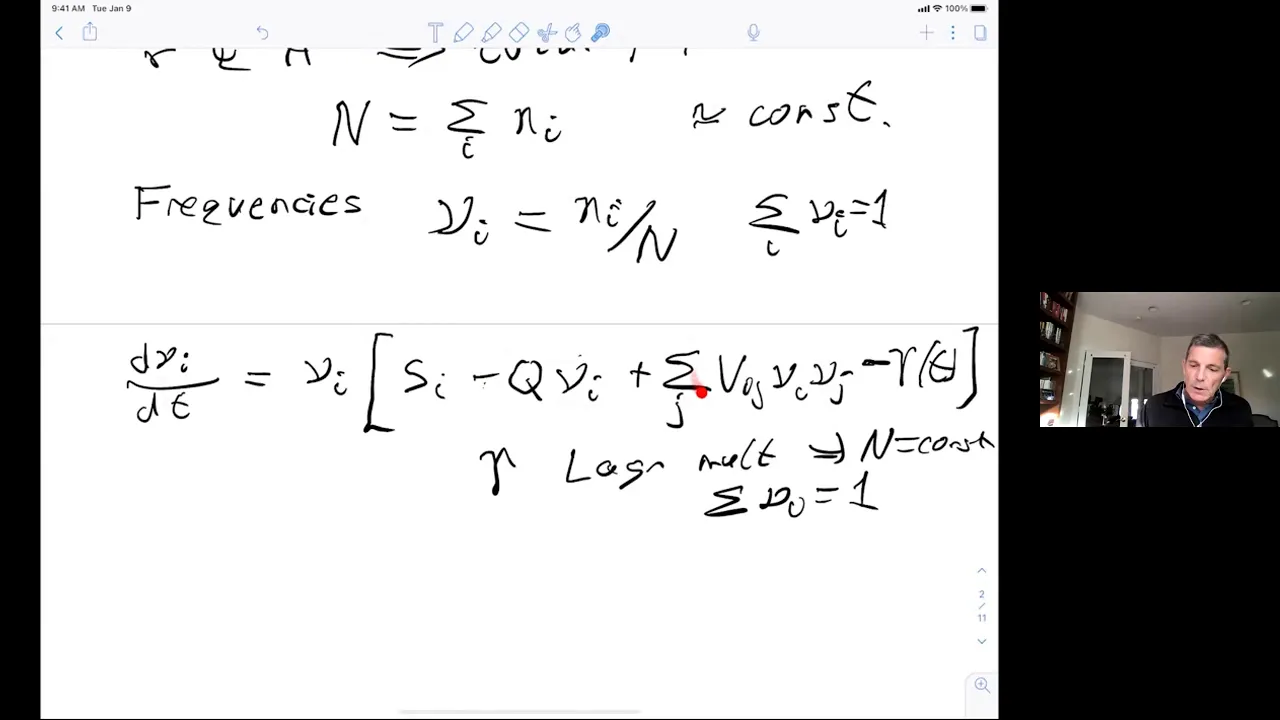 9:41 AM Tue Jan 9
100%
N = Σ_i n_i ≈ const.
Frequencies ν_i = n_i/N Σ_i ν_i = 1
dν_i/dt = ν_i [ S_i − Q ν_i + Σ_j V_ij ν_i ν_j − Υ(t) ]
Υ Lagr mult ⇒ N = const
Σ ν_i = 1
2
/
11